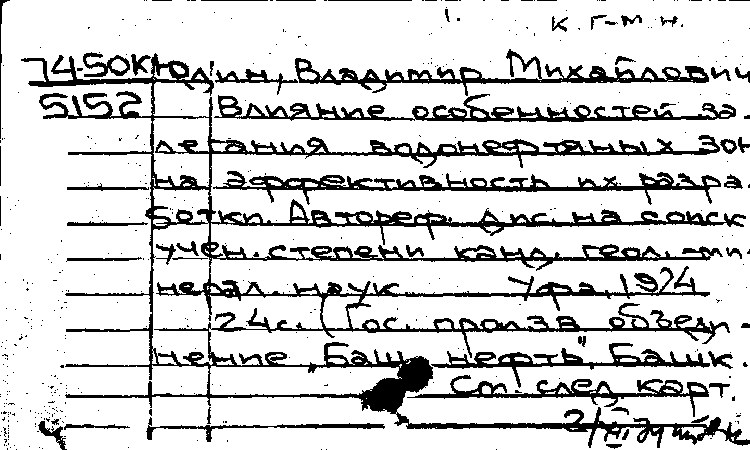 1. к. г-м н.
74-50К Юдин, Владимир Михайлович
5152 Влияние особенностей за-
легания водонефтяных зон
на эффективность их разра-
ботки. Автореф. дис. на соиск
учен. степени канд. геол.-ми-
нерал. наук Уфа, 1974
24с. (Гос. произв объеди-
нение "Башнефть". Башк.
См. след. карт.